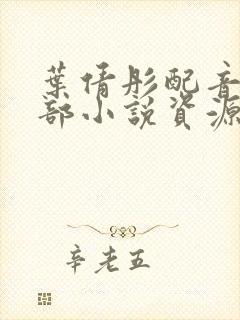 葉倩彤配音
部小說資源
辛老五